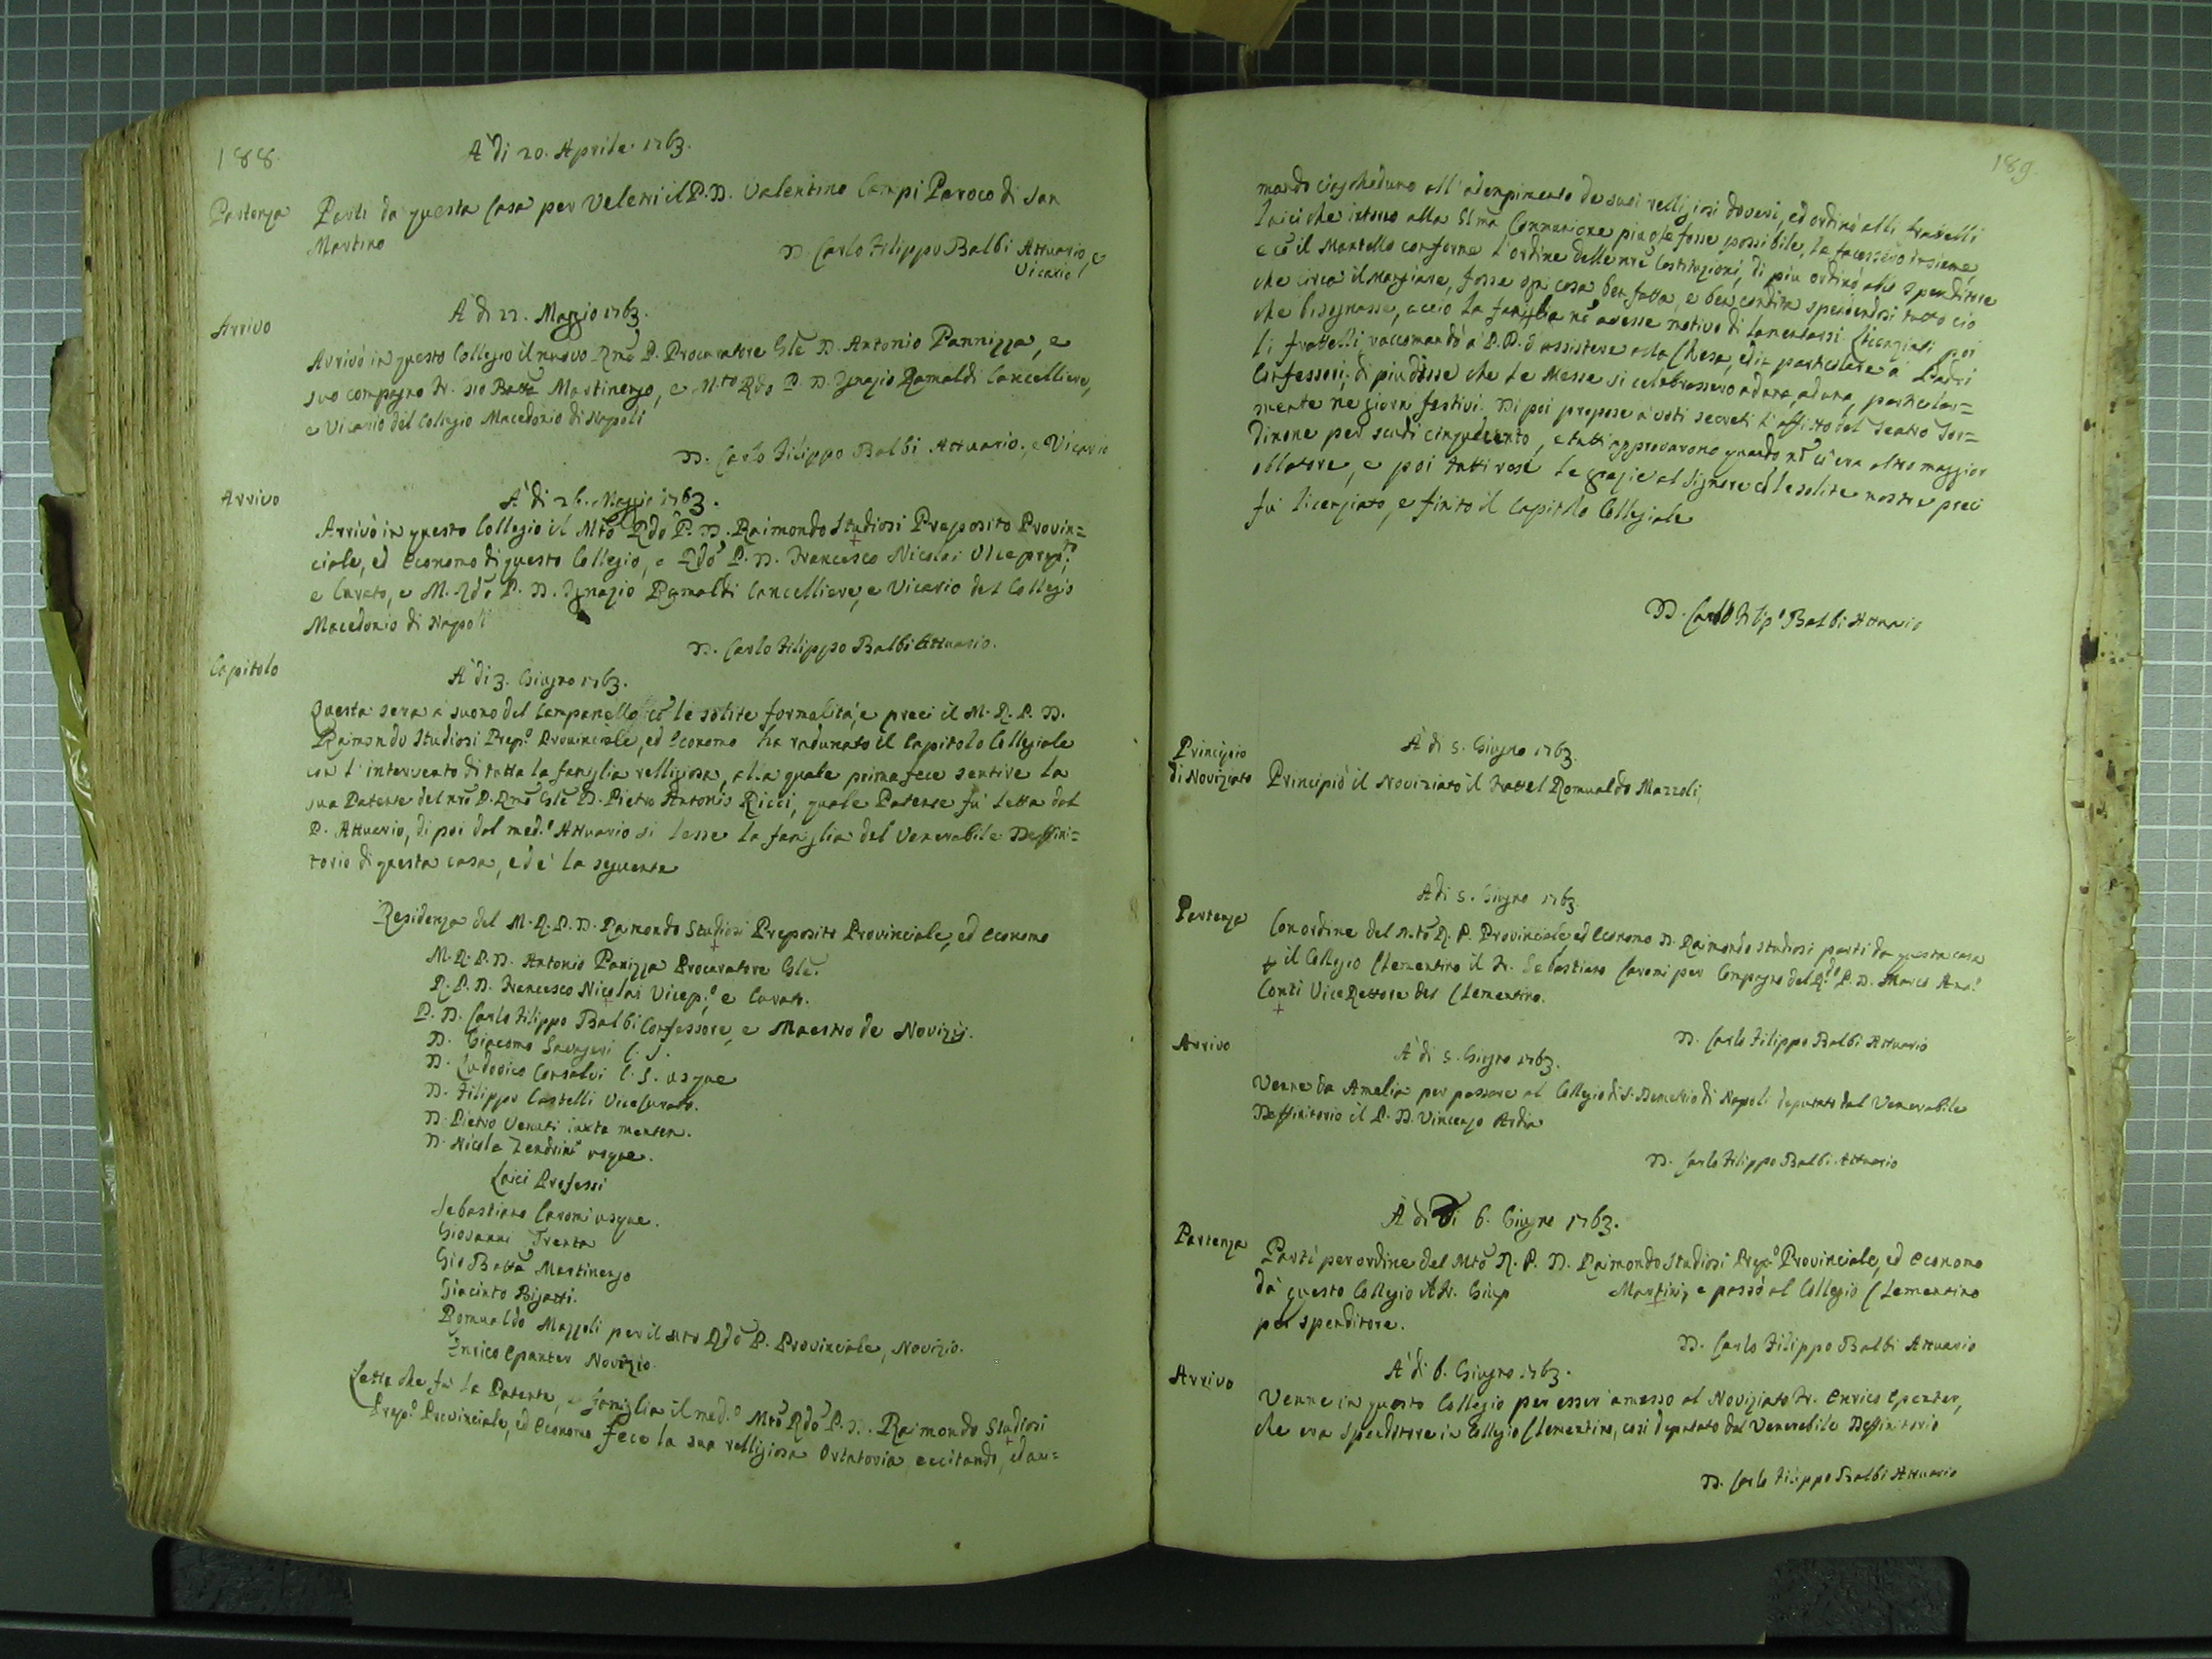 188.
A' di 20. Aprile 1763.
Partenza
Partì da questa Casa per Veletri il P. D. Valentino Campi Paroco di San
Martino
D. Carlo Filippo Balbi Attuario, e
Vicario
A di 22. Maggio 1763.
Arrivo
Arrivò in questo Collegio il nuovo Rmo P. Procuratore Gle D. Antonio Pannizza, e
suo compagno Fr. Gio Batta Martinengo, e Mto Rdo P. D. Ignazio Ramaldi Cancelliere,
e Vicario del Collegio Macedonio di Napoli
D. Carlo Filippo Balbi Attuario, e Vicario
Arrivo
A' di 26. Maggio 1763.
Arrivò in questo Collegio il Mto Rdo P. D. Raimondo Studiosi Preposito Provin=
ciale, ed Economo di questo Collegio, e Rdo P. D. Francesco Nicolai Viceprepto,
e Curato, e M. Rdo P. D. Ignazio Ramaldi Cancelliere, e Vicario del Collegio
Macedonio di Napoli
D. Carlo Filippo Balbi Attuario.
Capitolo
A' di 3. Giugno 1763.
Questa sera a' suono del Campanello cō le solite formalità, e preci il M. R. P. D.
Raimondo Studiosi Prepo Provinciale, ed Economo ha radunato il Capitolo Collegiale
con l'intervento di tutta la famiglia relligiosa, alla quale prima fece sentire la
sua Patente del nro P. Rmo Gle D. Pietro Antonio Ricci, quale Patente fu' letta dal
P. Attuario, di poi dal med.o Attuario si lesse la famiglia del Venerabile Deffini=
torio di questa casa, ed e' la seguente
Residenza del M. R. P. D. Raimondo Studiosi Preposito Provinciale, ed Economo
M. R. P. D. Antonio Panizza Procuratore Gle.
R. P. D. Francesco Nicolai Vicep.o e Curato.
P. D. Carlo Filippo Balbi Confessore, e Maestro de Novizij.
D. Giacomo C. S.
D. Ludovico Consalvi C. S. usque
D. Filippo Castelli Vicecurato.
D. Pietro Venuti iuxta mentem.
D. Nicola Zendrini usque.
Laici Professi
Sebastiano Caroni usque.
Giovanni Trenta
Gio Batta Martinengo
Giacinto Bigatti.
Romualdo Mazzoli per il Mto Rdo P. Provinciale, Novizio.
Enrico Epanter Novizio.
Letta che fu' la Patente, e famiglia il med.o Mto Rdo P. D. Raimondo Studiosi
Prepo Provinciale, ed Economo fece la sua relligiosa Ortatoria eccitando, ed ani=
189.
mando ciascheduno all'adempimento de suoi relligiosi doveri, ed ordinò alli Fratelli
Laici che intorno alla SSma Communione più che fosse possibile, la facessero insieme,
e cō il Mantello conforme l'ordine delle nre Costituzioni, di più ordinò allo spenditore
che circa il Mangiare, fosse ogni cosa ben fatta, e ben condita spendendosi tutto ciò
che bisognasse, acciò la famiglia nō avesse motivo di lamentarsi. Licenziati poi
li fratelli raccomandò a' P.P. d'assistere alla Chiesa, ed in particolare a' Padri
Confessori; di più disse che le Messe si celebrassero ad ora, ad ora, particolar=
mente ne giorni festivi. Di poi propose a' voti secreti l'affitto del Teatro Tor=
dinone per scudi cinquecento, e tutti approvarono quando nō ci era altro maggior
oblatore, e poi tutti rese le grazie al Signore cō le solite nostre preci
fu' licenziato, e finito il Capitolo Collegiale
D. Carlo Filipo Balbi Attuario
Principio
di Noviziato
A' di 5. Giugno 1763.
Principiò il Noviziato il Frattel Romualdo Mazzoli,
A di 5. Giugno 1763.
Partenza
Con ordine del Mto R. P. Provinciale, ed Economo D. Raimondo Studiosi partì da questa casa
p il Collegio Clementino il Fr. Sebastiano Caroni per Compagno del Rdo P. D. Marco Anto
Conti Vice Rettore del Clementino.
D. Carlo Filippo Balbi Attuario
Arrivo
A' di 5. Giugno 1763.
Venne da Amelia per passare al Collegio di S. Demetrio di Napoli deputato dal Venerabile
Deffinitorio il P. D. Vincenzo Ardia
D. Carlo Filippo Balbi Attuario
A di 6. Giugno 1763.
Partenza
Partì per ordine del Mto R. P. D. Raimondo Studiosi Prepo Provinciale, ed Economo
da' questo Collegio il Fr. Giup Martini, e passò al Collegio Clementino
per spenditore.
D. Carlo Filippo Balbi Attuario
A' di 6. Giugno 1763.
Arrivo
Venne in questo Collegio per esser amesso al Noviziato Fr. Enrico Epanter,
che era spenditore in Collegio Clementino, così deputato dal Venerabile Deffinitorio
D. Carlo Filippo Balbi Attuario